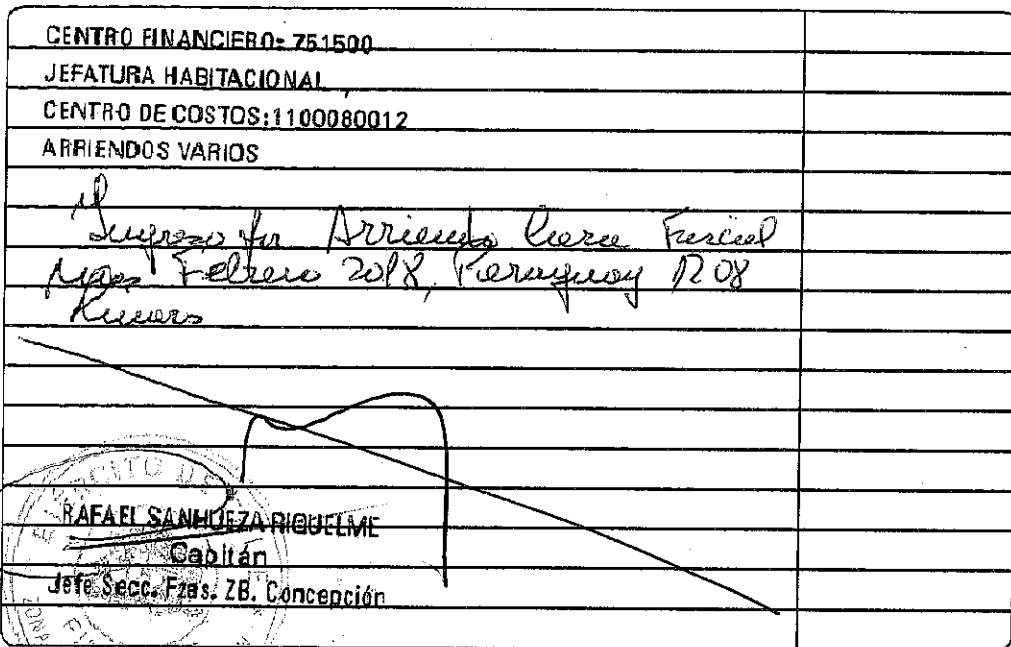 CENTRO FINANCIERO: 751500
JEFATURA HABITACIONAL
CENTRO DE COSTOS: 1100080012
ARRIENDOS VARIOS
Ingreso por Arriendo Casa Fiscal
Mes Febrero 2018, Paraguay 1208
EJERCITO DE
RAFAEL SANHUEZA RIQUELME
Capitán
Jefe Secc. Fzas. ZB. Concepción